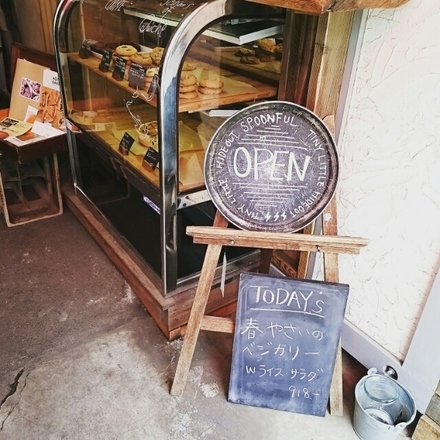 TINY LITTLE HIDEOUT SPOONFUL
OPEN
TINY LITTLE HIDEOUT
TODAYS
春やさいの
ベジカリー
Wライス・サラダ
918-